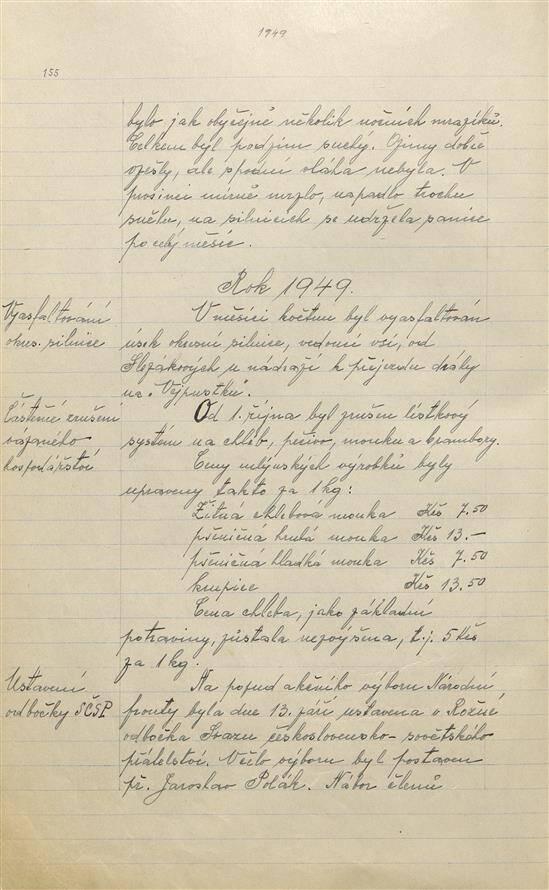 1949
155
bylo jak obyčejně několik nočních mrazíků.
Celkem byl podzim suchý. Ozimy dobře
vzešly, ale spodní vláha nebyla. V
prosinci mírně mrzlo, napadlo trochu
sněhu, na silnicích se udržela sanice
po celý měsíc.
Rok 1949.
Vyasfaltování
okres. silnice
V měsíci květnu byl vyasfaltován
úsek okresní silnice, vedoucí vsí, od
Slezákových u nádraží k přejezdu dráhy
na "Vejpustku".
Částečné zrušení
vázaného
hospodářství
Od 1. října byl zrušen lístkový
systém na chléb, pečivo, mouku a brambory.
Ceny mlýnských výrobků byly
upraveny takto za 1 kg:
Žitná chlebová mouka Kčs 7.50
pšeničná hrubá mouka Kčs 13.—
pšeničná hladká mouka Kčs 7.50
krupice Kčs 13.50
Cena chleba, jako základní
potraviny, zůstala nezvýšena, t.j. 5 Kčs
za 1 kg.
Ustavení
odbočky SČSP
Na popud akčního výboru Národní
fronty byla dne 13. září ustavena v Rožné
odbočka Svazu československo-sovětského
přátelství. V čelo výboru byl postaven
př. Jaroslav Polák. Nábor členů